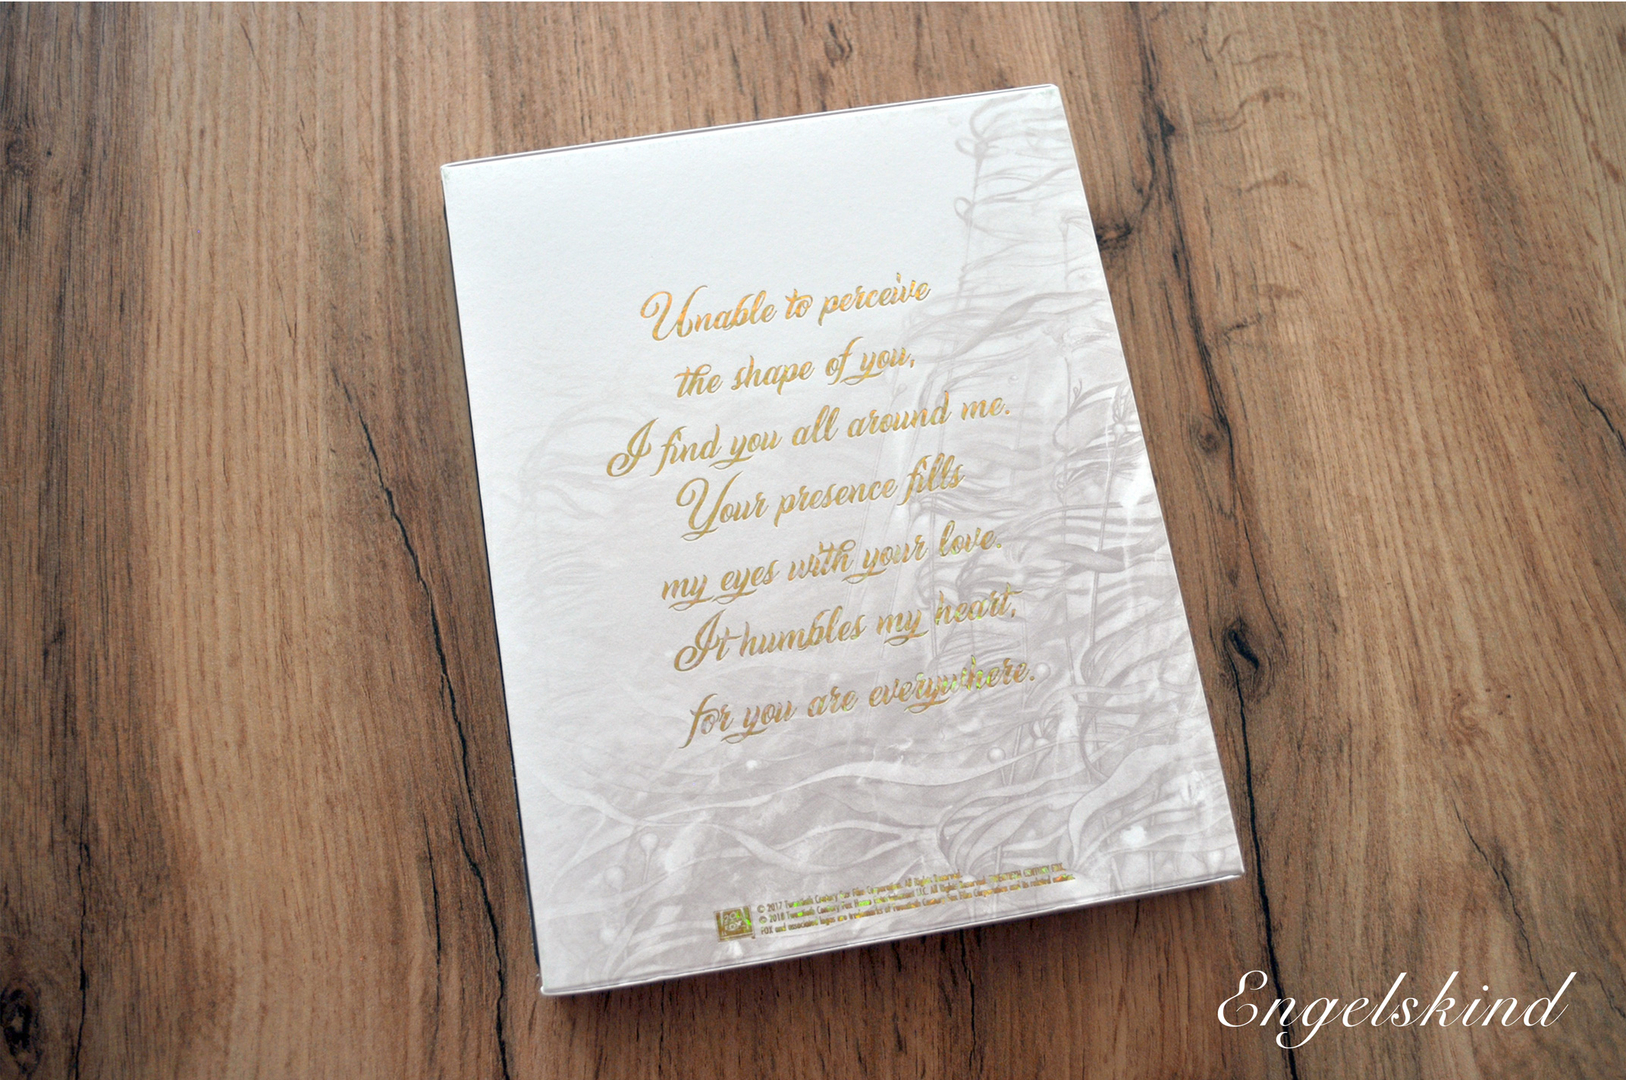 Unable to perceive
the shape of you,
I find you all around me.
Your presence fills
my eyes with your love.
It humbles my heart,
for you are everywhere.
© 2017 Twentieth Century Fox Film Corporation. All Rights Reserved.
© 2018 Twentieth Century Fox Home Entertainment LLC. All Rights Reserved. TWENTIETH CENTURY FOX,
FOX and associated logos are trademarks of Twentieth Century Fox Film Corporation and its related entities.
Engelskind